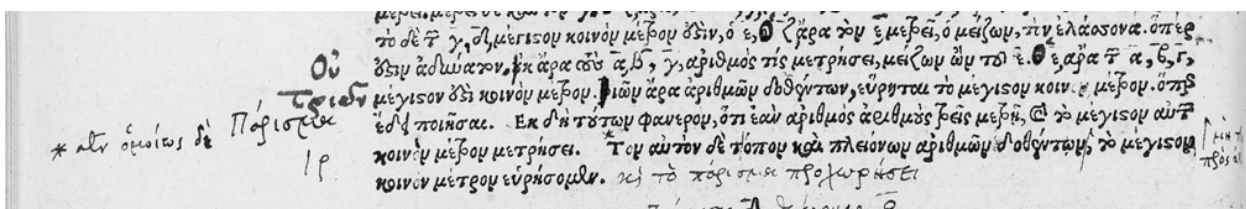 τὸ δὲ τ̅ γ̅, δ̅, μέγιστον κοινὸν μέτρον ἐστὶν, ὁ ε̅, Ὁ ζ̅ ἄρα τὸν ε̅ μετρεῖ, ὁ μείζων, τὴν ἐλάσσονα. ὅπερ
Οὐ
ἐστὶν ἀδύνατον. οὐκ ἄρα τοὺς α̅, β̅, γ̅, ἀριθμός τίς μετρήσει, μείζων ὢν τοῦ ε̅. Ὁ ε̅ ἄρα τ̅ α̅, β̅, γ̅,
Τριῶν
μέγιστον ἐστὶ κοινὸν μέτρον. Τριῶν ἄρα ἀριθμῶν δοθέντων, εὕρηται τὸ μέγιστον κοινὸν μέτρον. ὅπερ
Πόρισμα
ἔδει ποιῆσαι. Ἐκ δὴ τούτων φανερὸν, ὅτι ἐὰν ἀριθμὸς ἀριθμοὺς τρεῖς μετρῇ, καὶ τὸ μέγιστον αὐτῶν
* ὁμοίως δὲ
κοινὸν μέτρον μετρήσει. * Τὸν αὐτὸν δὲ τόπον καὶ πλειόνων ἀριθμῶν δοθέντων, τὸ μέγιστον
κοινὸν μέτρον εὑρήσομεν. κὶ τὸ πόρισμα προχωρήσει